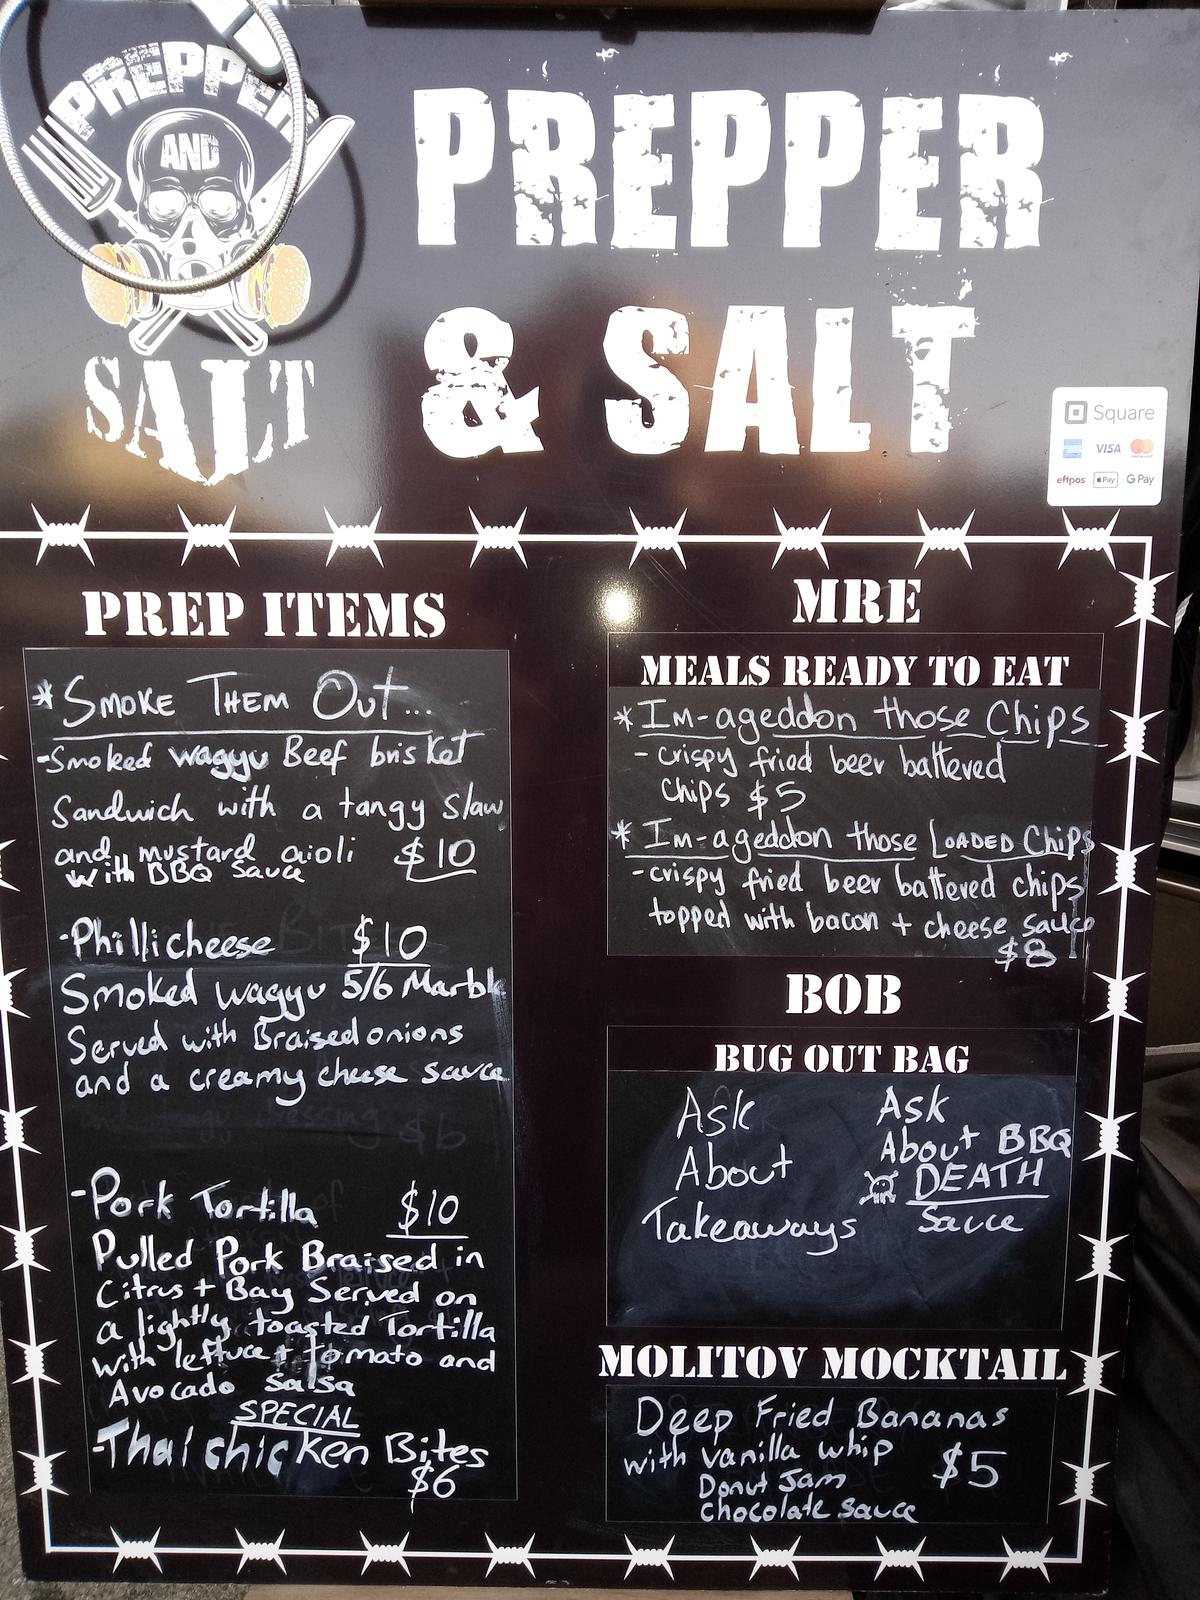 PREPPER
AND
SALT
PREPPER
& SALT
Square
VISA
mastercard
eftpos
Pay
G Pay
PREP ITEMS
* SMOKE THEM OUT...
- Smoked wagyu Beef brisket
Sandwich with a tangy slaw
and mustard aioli $10
with BBQ Sauce
- Phillicheese $10
Smoked wagyu 5/6 Marble
Served with Braised onions
and a creamy cheese sauce
- Pork Tortilla $10
Pulled Pork Braised in
Citrus + Bay Served on
a lightly toasted Tortilla
with lettuce + tomato and
Avocado Salsa
SPECIAL
- Thai chicken Bites
$6
MRE
MEALS READY TO EAT
* Im-ageddon those Chips
- crispy fried beer battered
chips $5
* Im-ageddon those LOADED Chips
- crispy fried beer battered chips
topped with bacon + cheese sauce
$8
BOB
BUG OUT BAG
Ask
About
Takeaways
Ask
About BBQ
DEATH
Sauce
MOLITOV MOCKTAIL
Deep Fried Bananas
with vanilla whip $5
Donut Jam
Chocolate sauce